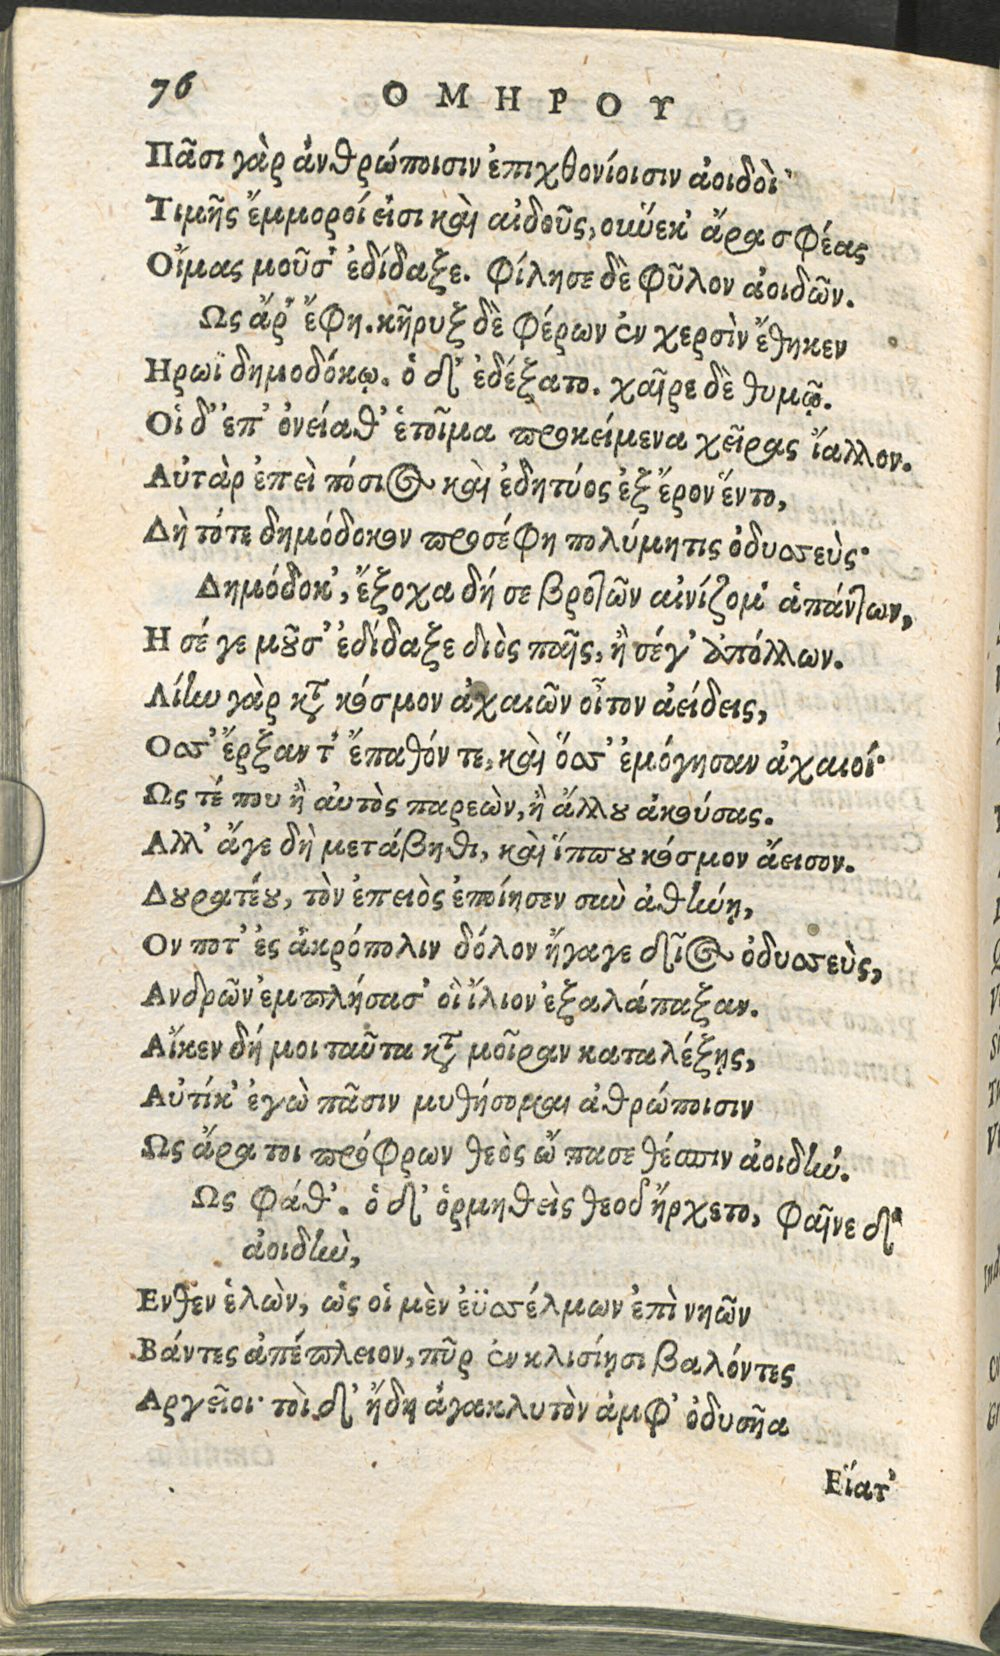 76 ΟΜΗΡΟΥ
Πᾶσι γὰρ ἀνθρώποισιν ἐπιχθονίοισιν ἀοιδοὶ
Τιμῆς ἔμμοροί εἰσι καὶ αἰδοῦς, οὕνεκ' ἄρα σφέας
Οἴμας μοῦσ' ἐδίδαξε. φίλησε δὲ φῦλον ἀοιδῶν.
Ως ἄρ' ἔφη. κῆρυξ δὲ φέρων ἐν χερσὶν ἔθηκεν
Ηρωϊ δημοδόκῳ. ὁ δ' ἐδέξατο. χαῖρε δὲ θυμῷ.
Οἱ δ' ἐπ' ὀνείαθ' ἑτοῖμα προκείμενα χεῖρας ἴαλλον.
Αὐτὰρ ἐπεὶ πόσιος καὶ ἐδητύος ἐξ ἔρον ἕντο,
Δὴ τότε δημόδοκον προσέφη πολύμητις ὀδυσσεὺς·
Δημόδοκ', ἔξοχα δή σε βροτῶν αἰνίζομ' ἁπάντων,
Η σέ γε μοῦσ' ἐδίδαξε διὸς παῖς, ἢ σέγ' ἀπόλλων.
Λίην γὰρ κατὰ κόσμον ἀχαιῶν οἶτον ἀείδεις,
Οσσ' ἔρξαν τ' ἔπαθόν τε, καὶ ὅσσ' ἐμόγησαν ἀχαιοί·
Ως τέ που ἢ αὐτὸς παρεὼν, ἢ ἄλλου ἀκούσας.
Αλλ' ἄγε δὴ μετάβηθι, καὶ ἵππου κόσμον ἄεισον.
Δουρατέου, τὸν ἐπειὸς ἐποίησεν σὺν ἀθήνῃ,
Ον ποτ' ἐς ἀκρόπολιν δόλον ἤγαγε δῖος ὀδυσσεὺς,
Ανδρῶν ἐμπλήσας' οἳ ἴλιον ἐξαλάπαξαν.
Αἴκεν δή μοι ταῦτα κατὰ μοῖραν καταλέξῃς,
Αὐτίκ' ἐγὼ πᾶσιν μυθήσομαι ἀθρώποισιν
Ως ἄρα τοι πρόφρων θεὸς ὤπασε θέσπιν ἀοιδήν.
Ως φάθ'. ὁ δ' ὁρμηθεὶς θεοῦ ἤρχετο, φαῖνε δ'
ἀοιδὴν,
Ενθεν ἑλὼν, ὡς οἱ μὲν ἐϋσσέλμων ἐπὶ νηῶν
Βάντες ἀπέπλειον, πῦρ ἐν κλισίῃσι βαλόντες
Αργεῖοι· τοὶ δ' ἤδη ἀγακλυτὸν ἀμφ' ὀδυσῆα
Εἵατ'